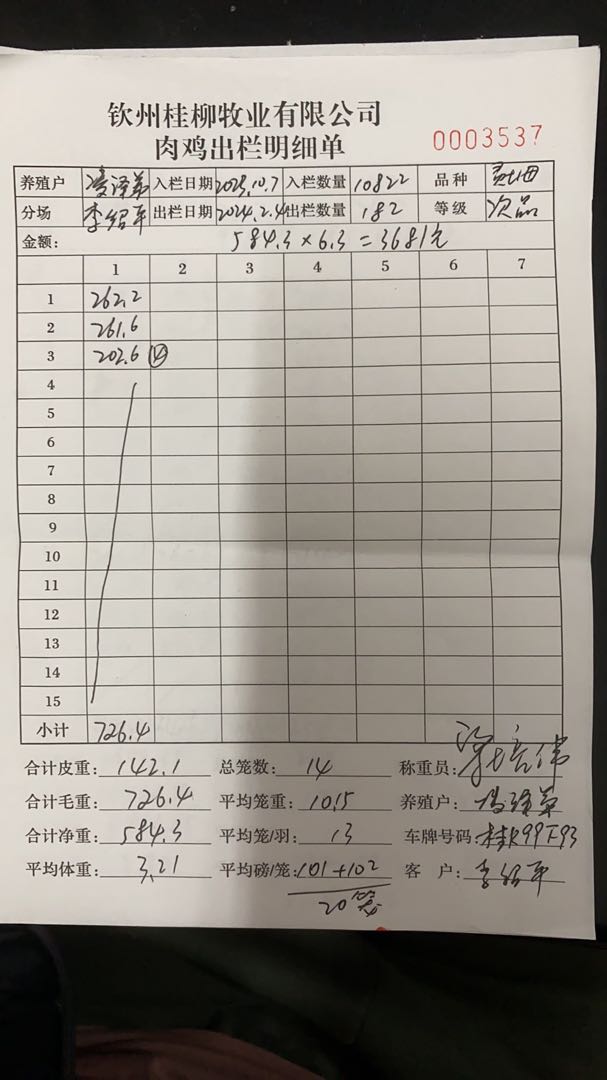 钦州桂柳牧业有限公司
肉鸡出栏明细单
0003537
养殖户 入栏日期 2023.10.7 入栏数量 10822 品种
分场 李绍平 出栏日期 2024.2.4 出栏数量 182 等级 次品
金额: 584.3×6.3=3681元
1 2 3 4 5 6 7
1 262.2
2 261.6
3 202.6 ⑭
4
5
6
7
8
9
10
11
12
13
14
15
小计 726.4
合计皮重: 142.1 总笼数: 14 称重员:
合计毛重: 726.4 平均笼重: 10.15 养殖户:
合计净重: 584.3 平均笼/羽: 13 车牌号码: 桂K99F93
平均体重: 3.21 平均磅/笼: 101+102 客 户: 李绍平
20